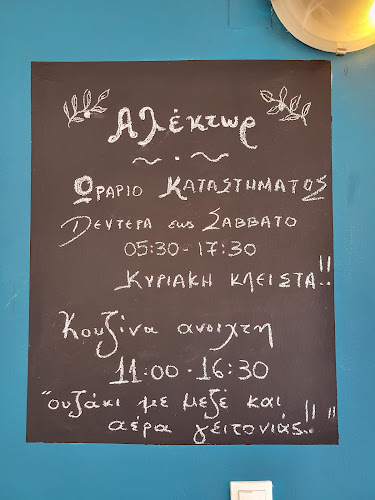 Αλέκτωρ
ΩΡΑΡΙΟ ΚΑΤΑΣΤΗΜΑΤΟΣ
ΔΕΥΤΕΡΑ εως ΣΑΒΒΑΤΟ
05:30-17:30
ΚΥΡΙΑΚΗ ΚΛΕΙΣΤΑ!!
Κουζίνα ανοιχτη
11:00-16:30
"ουζάκι με μεζέ και
αέρα γειτονιάς!!"